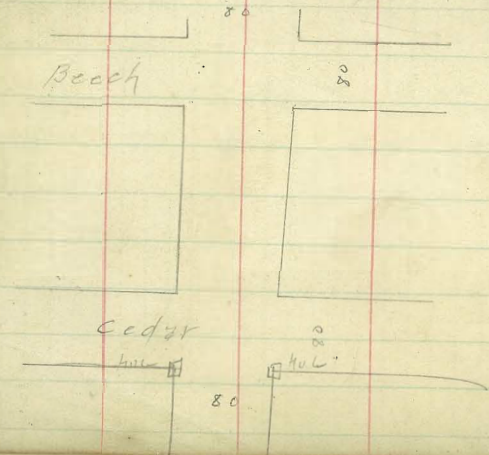 80
Beech 80
Cedar 80
HUL HUL
80